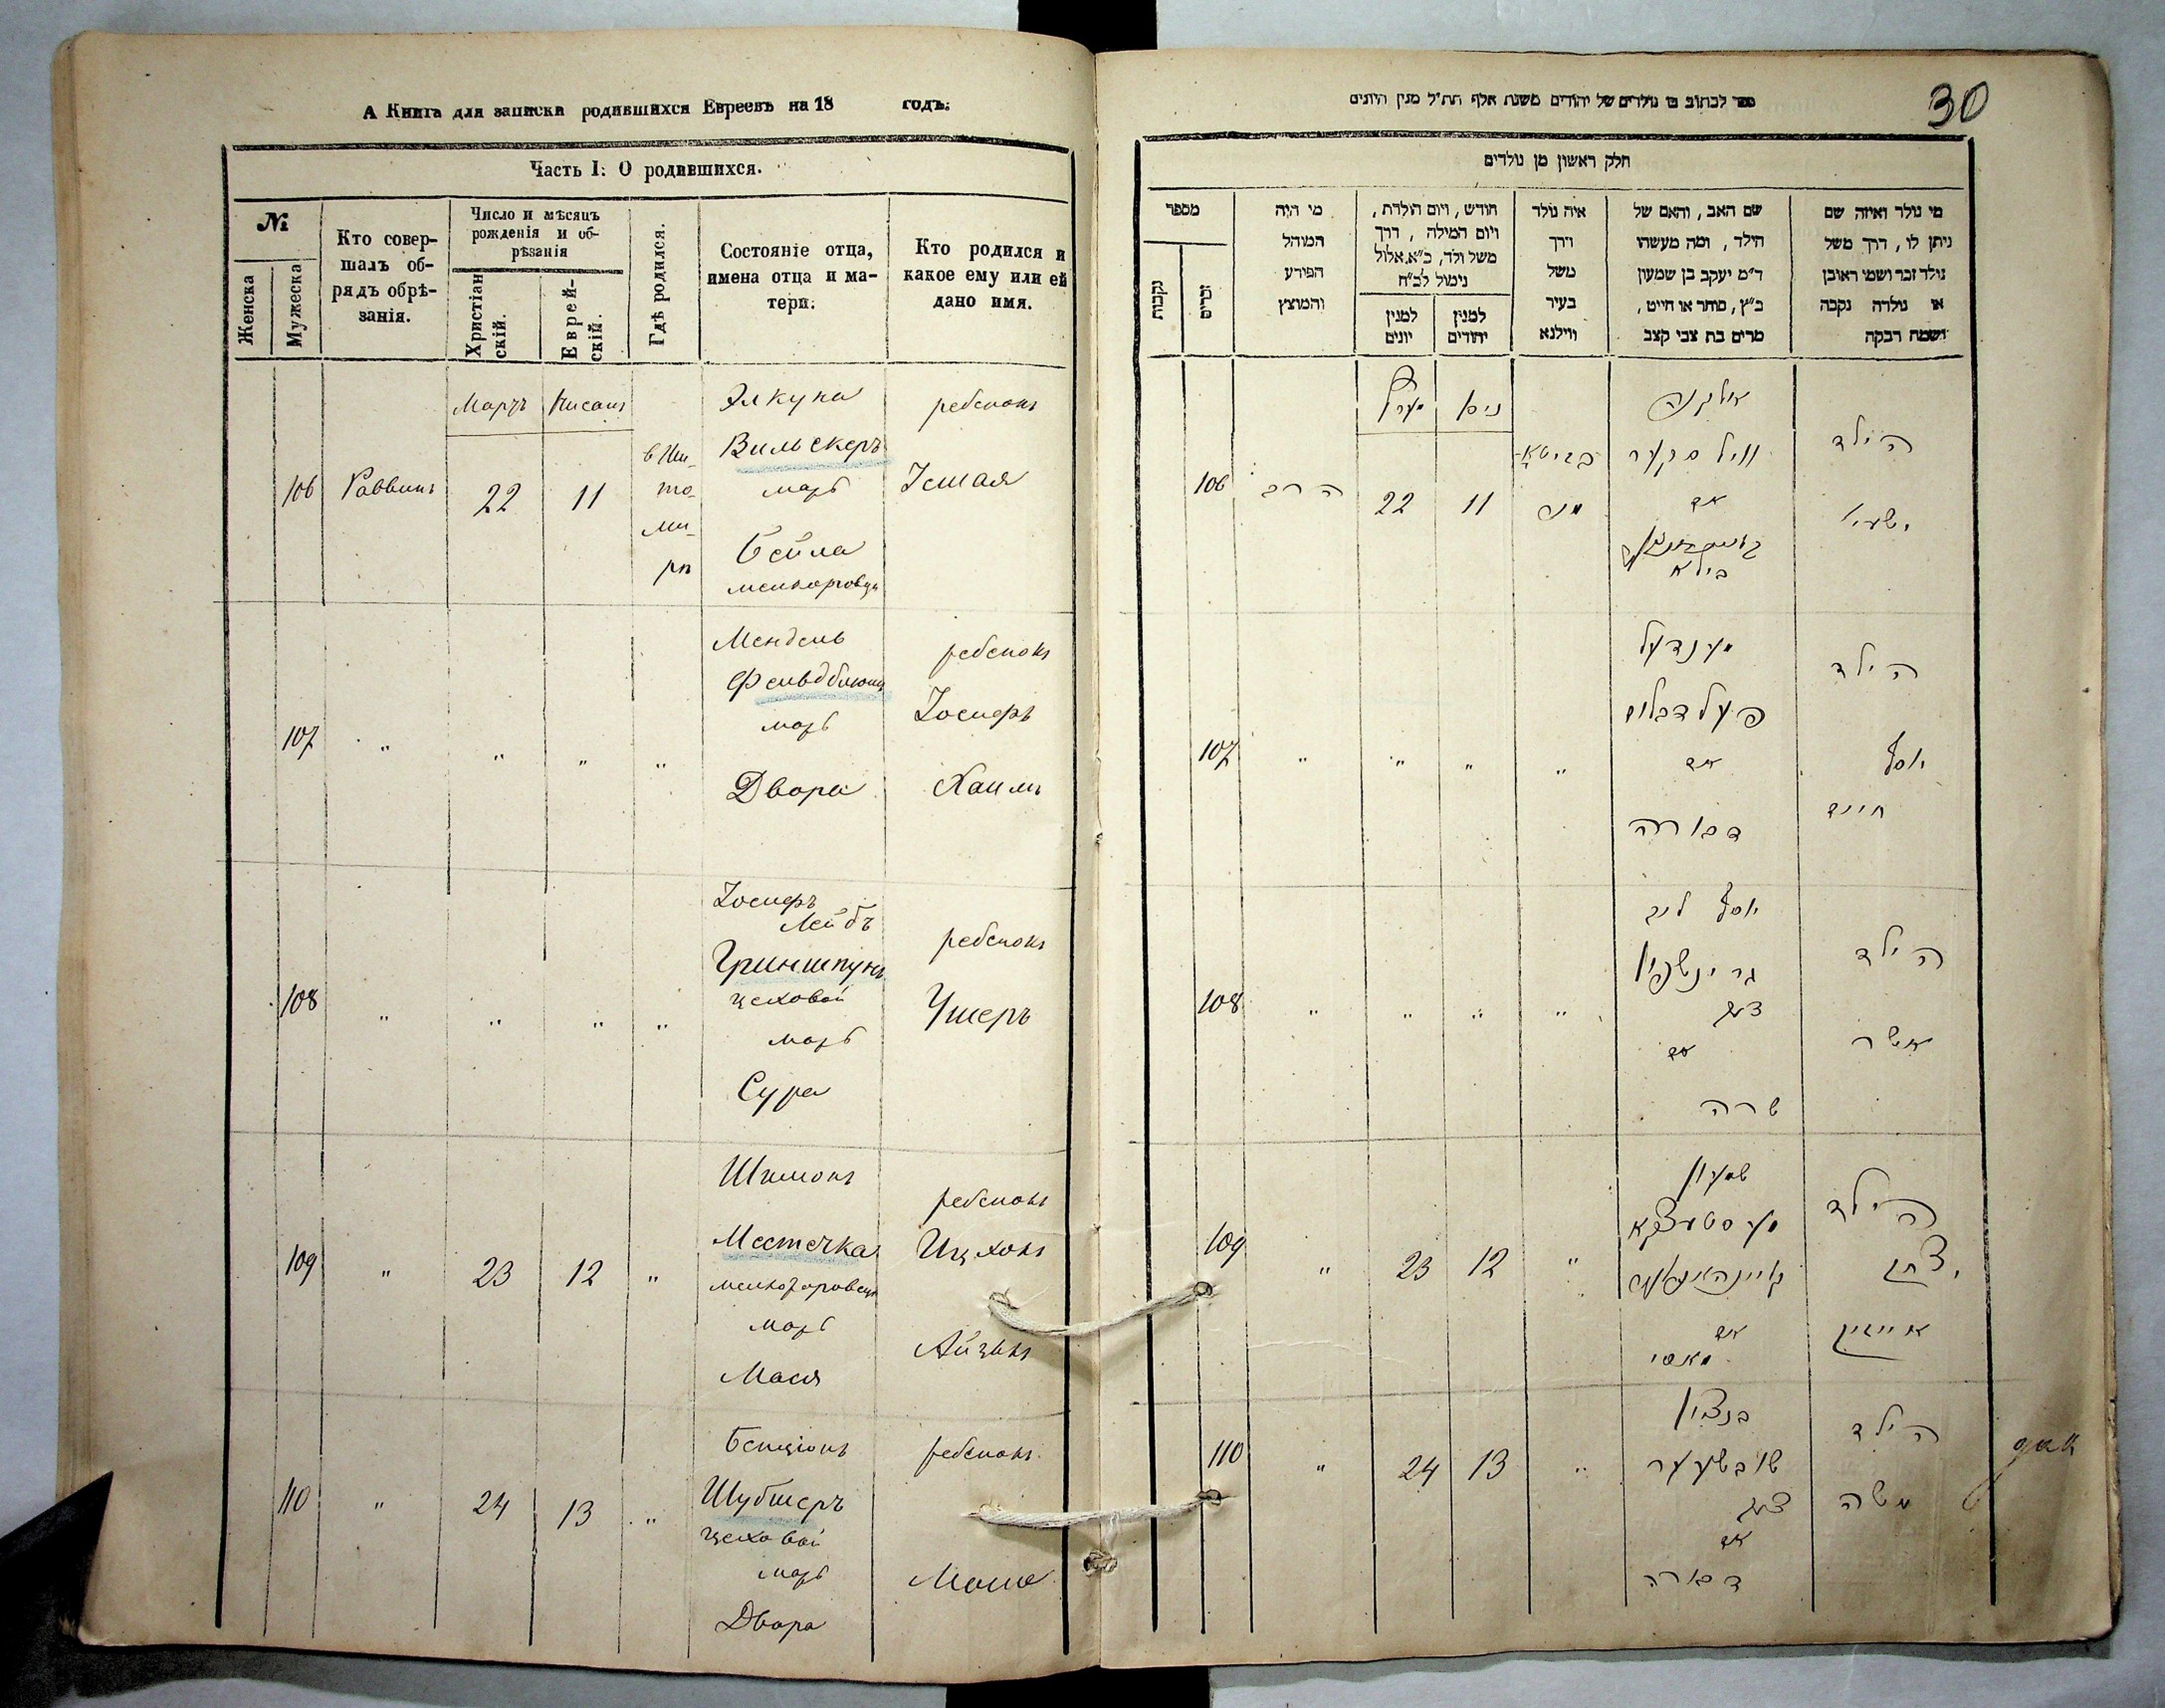 А Книга для записки родившихся Евреевъ на 18 годъ.
Часть I: О родившихся.
№
Женска
Мужеска
Кто совер-
шалъ об-
рядъ обрѣ-
занія.
Число и мѣсяцъ
рожденія и об-
рѣзанія
Христіан
скій.
Еврей-
скій.
Гдѣ родился.
Состояніе отца,
имена отца и ма-
тери.
Кто родился и
какое ему или ей
дано имя.
Мартъ
Нисанъ
106
Раввинъ
22
11
в Жи-
то-
ми-
рѣ
Элкуна
Вильскеръ
мать
Бейла
ребенокъ
Ісшая
107
"
"
"
"
Мендель
мать
Двора
ребенокъ
Іосифъ
Хаимъ
108
"
"
"
"
Іосифъ
Лейбъ
Гриншпунъ
цеховой
мать
Сура
ребенокъ
Ушеръ
109
"
23
12
"
Шимонъ
Местечка
мать
Мася
ребенокъ
Ицхокъ
Айзыкъ
110
"
24
13
"
Бенціонъ
Шубшеръ
цеховой
мать
Двора
ребенокъ
Моше
30
ספר לכתוב בו נולדים של יהודים משנת אלף תת"ל מנין היונים
חלק ראשון מן נולדים
מי נולד ואיזה שם
ניתן לו, דרך משל
נולד זכר ושמו ראובן
או נולדה נקבה
ושמה רבקה
שם האב, והאם של
הילד, ומה מעשהו
ד"מ יעקב בן שמעון
כ"ץ, סוחר או חייט,
מרים בת צבי קצב
איה נולד
דרך
משל
בעיר
ווילנא
חודש, ויום הולדת,
ויום המילה, דרך
משל ולד, כ"א אלול
נימול לכ"ח
למנין
יהודים
למנין
יונים
מי היה
המוהל
הפורע
והמוצץ
מספר
זכרים
נקבות
ניסן
הילד
ישעי'
אלקנה
ווילסקער
אם
ביילא
11
22
הרב
106
הילד
יוסף
חיים
מענדעל
אם
דבורה
"
"
"
"
107
הילד
אשר
יוסף ליב
אם
שרה
"
"
"
"
108
הילד
יצחק
אייזיק
שמעון
מעסטעצקא
אם
מאסי
"
12
23
"
109
הילד
משה
בנציון
שובשער
אם
דבורה
"
13
24
"
110